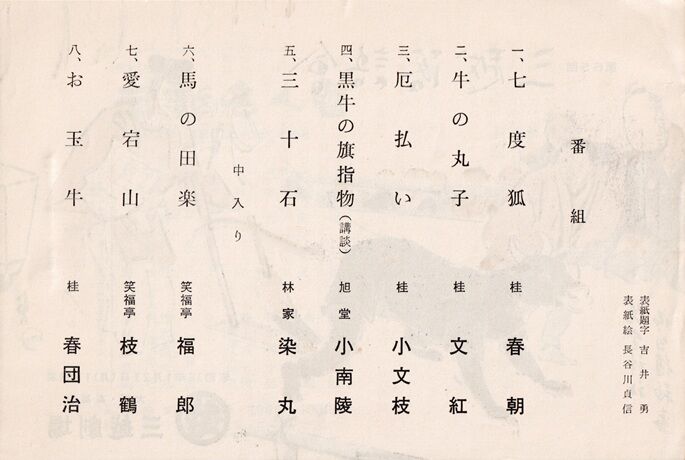 表紙題字 吉井勇
表紙絵 長谷川貞信
番組
一、七度狐 桂 春朝
二、牛の丸子 桂 文紅
三、厄払い 桂 小文枝
四、黒牛の旗指物(講談) 旭堂 小南陵
五、三十石 林家 染丸
中入り
六、馬の田楽 笑福亭 福郎
七、愛宕山 笑福亭 枝鶴
八、お玉牛 桂 春団治